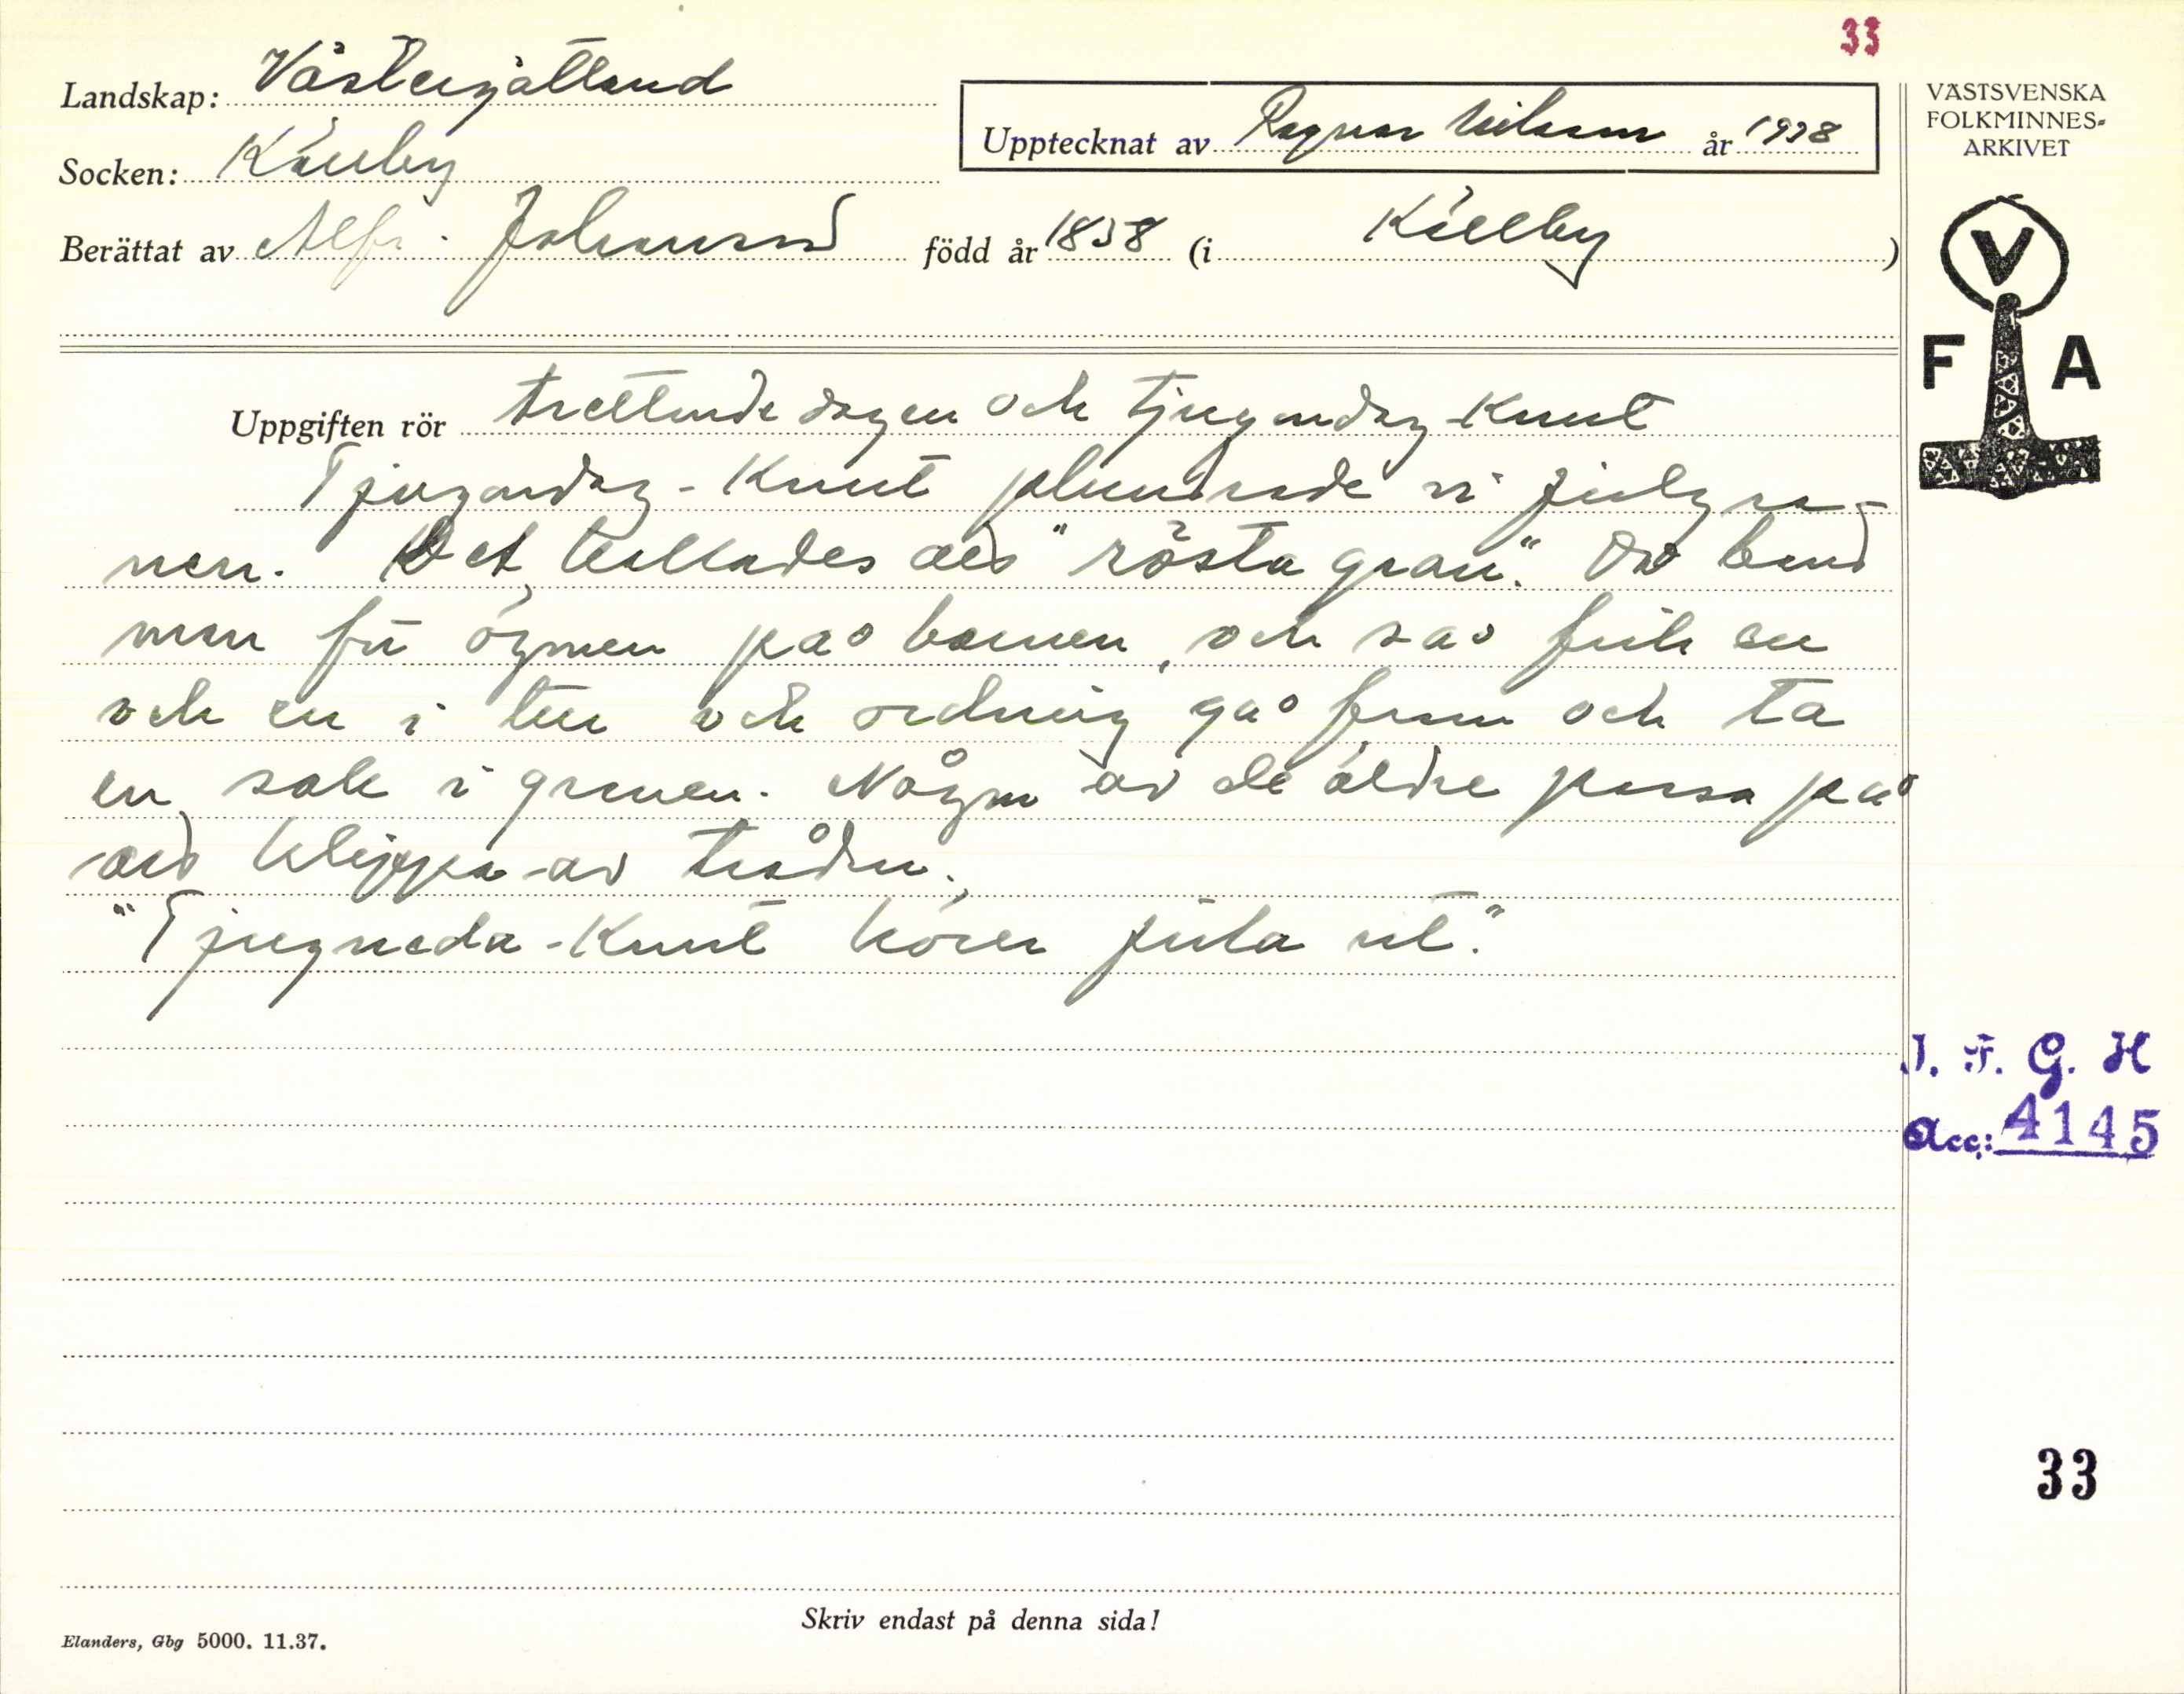 33
Landskap: Västergötland
Upptecknat av Ragnar Nilsson år 1938
VÄSTSVENSKA
FOLKMINNES-
ARKIVET
Socken: Källby
Berättat av Alfr. Johansson född år 1858 (i Källby)
V
F A
Uppgiften rör trettondedagen och tjugondag-Knut
Tjugondag-Knut plundrade vi julgra-
nen. Det kallades att "rösta gran". Då band
man för ögonen på barnen, och så fick en
och en i tur och ordning gå fram och ta
en sak i granen. Någon av de äldre passa på
att klippa av tråden.
"Tjugneda-Knut körer jula ut."
I. F. G. H
Acc: 4145
33
Skriv endast på denna sida!
Elanders, Gbg 5000. 11.37.